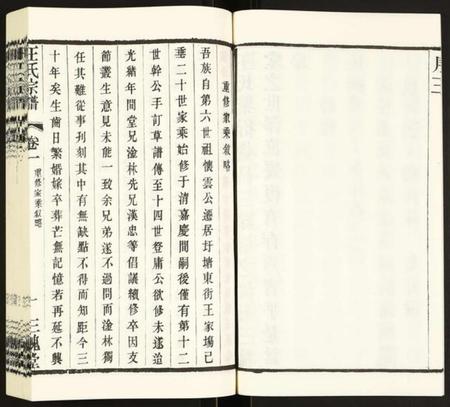 序三
重修家乘敘略
吾族自第六世祖懷雲公遷居圩塘東街王家場己
垂二十世家乘始修于清嘉慶間嗣後僅有第十二
世幹公手訂草譜傳至十四世登庸公欲修未遂迨
光緒年間堂兄淦林先兄漢忠等倡議續修卒因支
節叢生意見未能一致余兄弟遂不過問而淦林獨
任其難從事刋刻其中有無缺點不得而知距今三
十年矣生齒日繁婚嫁卒葬茫無記憶若再延不興
王氏宗譜
卷一
重修家乘敘略
一
三槐堂